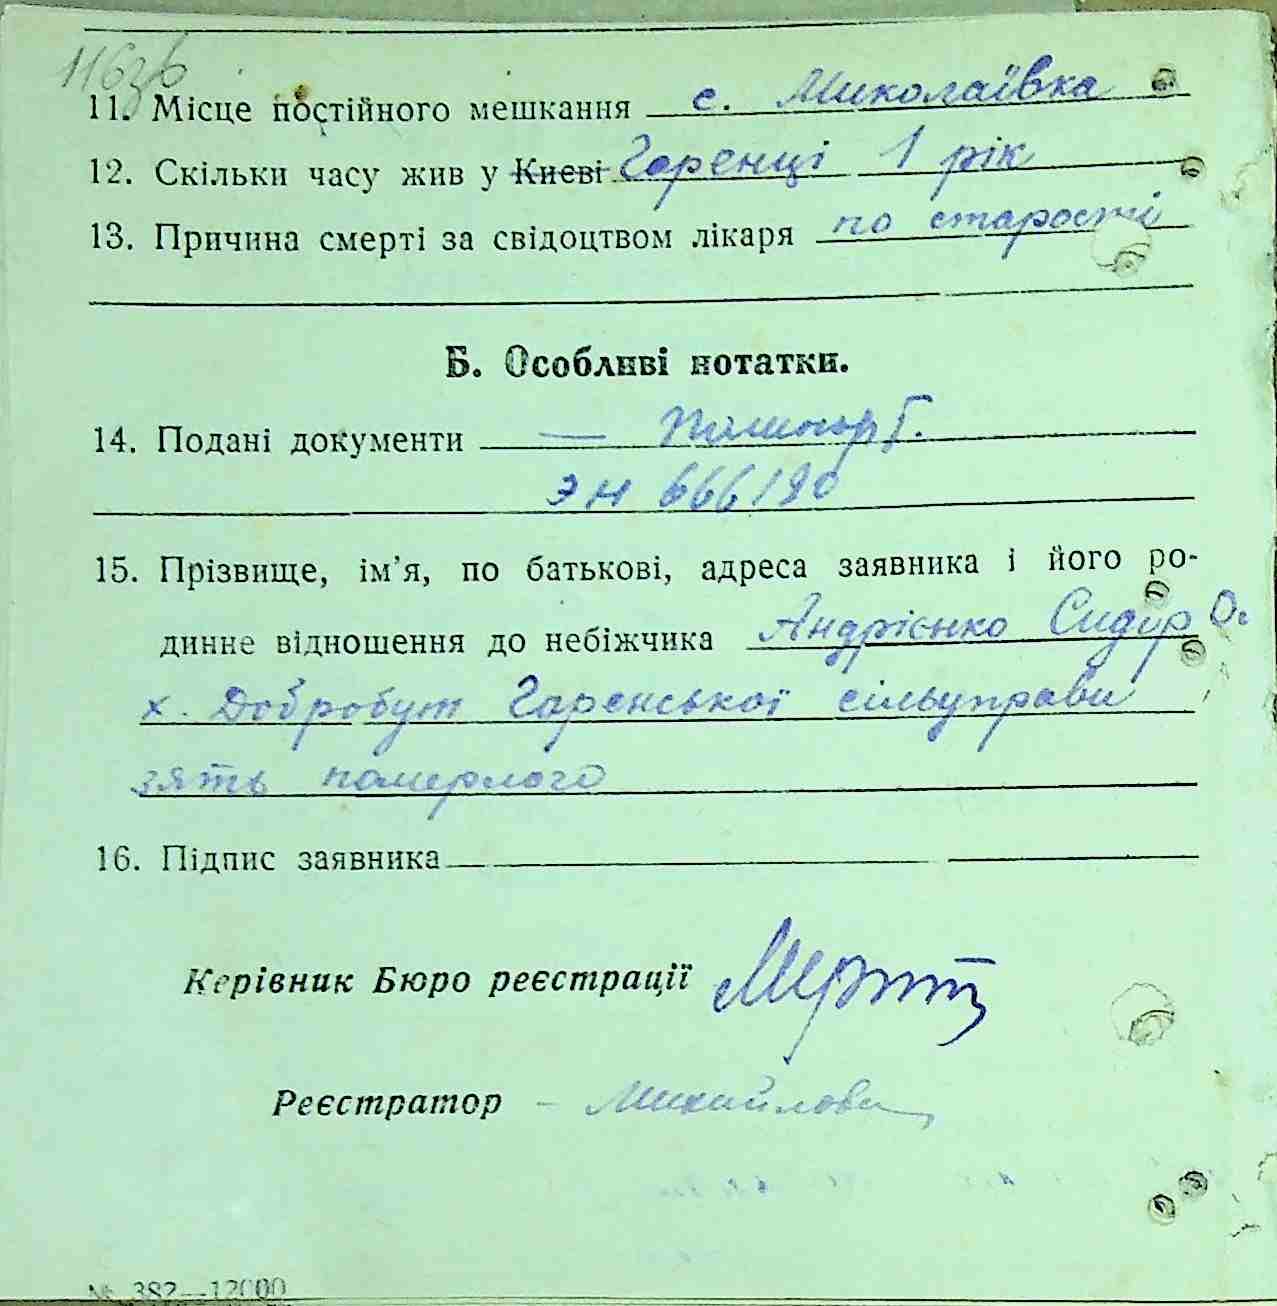 116зв
11. Місце постійного мешкання с. Миколаївка
12. Скільки часу жив у Києві Гаренці 1 рік
13. Причина смерті за свідоцтвом лікаря по старості
Б. Особливі нотатки.
14. Подані документи — Пашпорт.
ЭН 666190
15. Прізвище, ім'я, по батькові, адреса заявника і його ро-
динне відношення до небіжчика Андрієнко Сидир О.
х. Добробут Гаренської сільуправи
зять померлого
16. Підпис заявника
Керівник Бюро реєстрації
Реєстратор - Михайлова
№ 382—12000